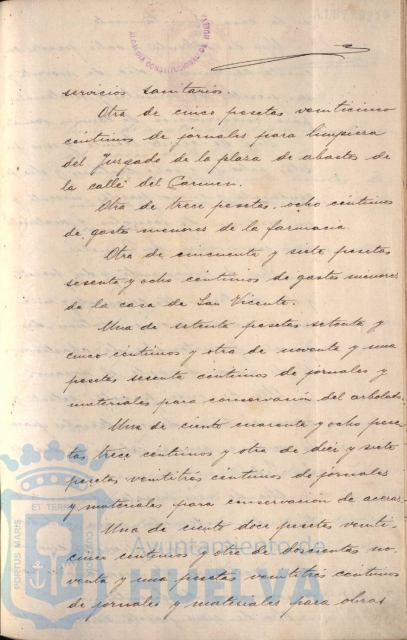 ALCALDIA CONSTITUCIONAL DE HUELVA
servicios sanitarios.
Otra de cinco pesetas veinticinco
céntimos de jornales para limpieza
del Juzgado de la plaza de abastos de
la calle del Carmen.
Otra de trece pesetas, ocho céntimos
de gastos menores de la farmacia.
Otra de cincuenta y siete pesetas
sesenta y ocho céntimos de gastos menores
de la casa de San Vicente.
Una de setenta pesetas setenta y
cinco céntimos y otra de noventa y una
pesetas sesenta céntimos de jornales y
materiales para conservación del arbolado.
Una de ciento cuarenta y ocho pese-
tas trece céntimos y otra de diez y siete
pesetas veintitrés céntimos de jornales
y materiales para conservación de aceras.
Una de ciento doce pesetas veinti-
cinco céntimos y otra de doscientas no-
venta y una pesetas veintitrés céntimos
de jornales y materiales para obras
PORTUS MARIS ET TERRAE CUSTODIA
Ayuntamiento de
HUELVA